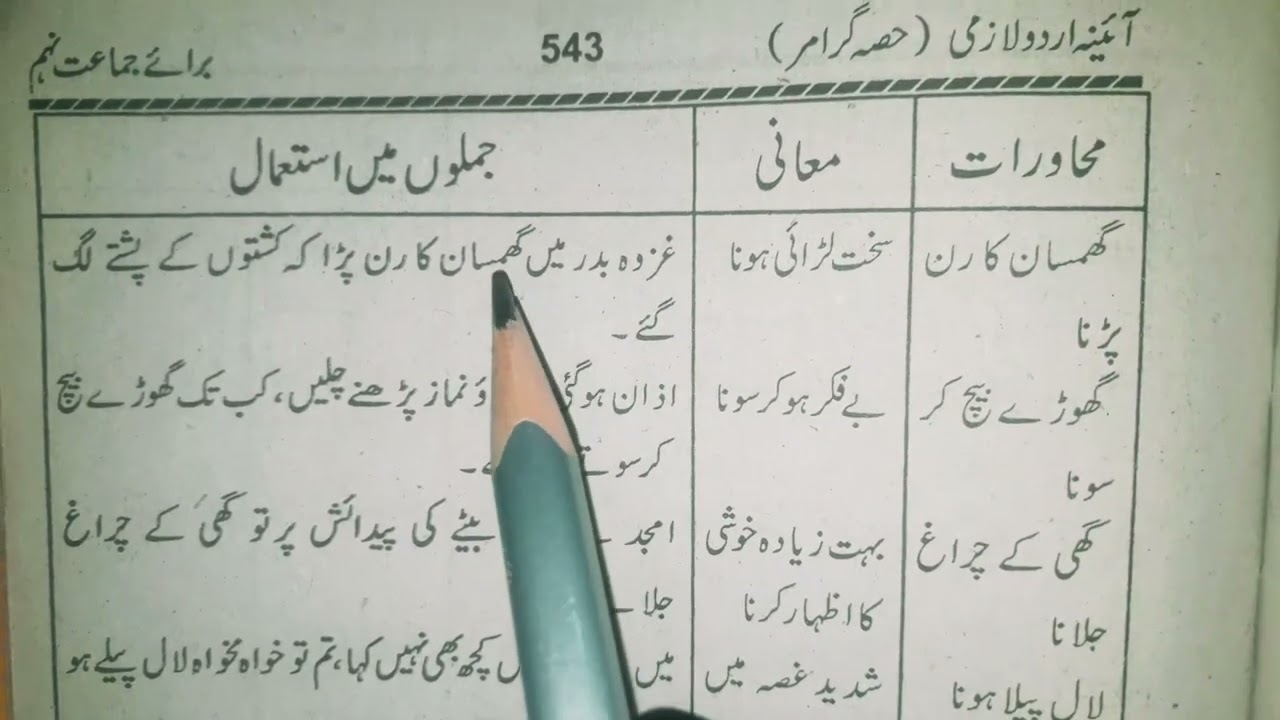 آئینہ اردو لازمی (حصہ گرامر) 543 برائے جماعت نہم
محاورات معانی جملوں میں استعمال
گھمسان کا رن سخت لڑائی ہونا غزوہ بدر میں گھمسان کا رن پڑا کہ کشتوں کے پشتے لگ
پڑنا گئے۔
گھوڑے بیچ کر بے فکر ہو کر سونا اذان ہوگئی نماز پڑھنے چلیں، کب تک گھوڑے بیچ
سونا کر
گھی کے چراغ بہت زیادہ خوشی امجد بیٹے کی پیدائش پر تو گھی کے چراغ
جلانا کا اظہار کرنا جلا
لال پیلا ہونا شدید غصہ میں میں کچھ بھی نہیں کہا، تم تو خواہ مخواہ لال پیلے ہو